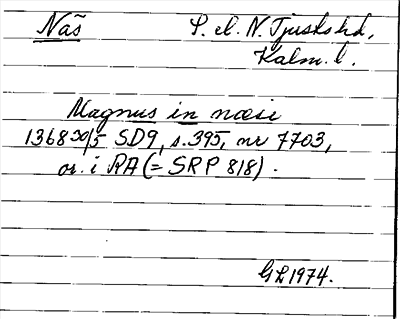 Näs S. el. N. Tjusts hd,
Kalm. l.
Magnus in næsi
1368 30/5 SD9, s. 395, nr 7703,
or. i RA (= SRP 818).
GL 1974.